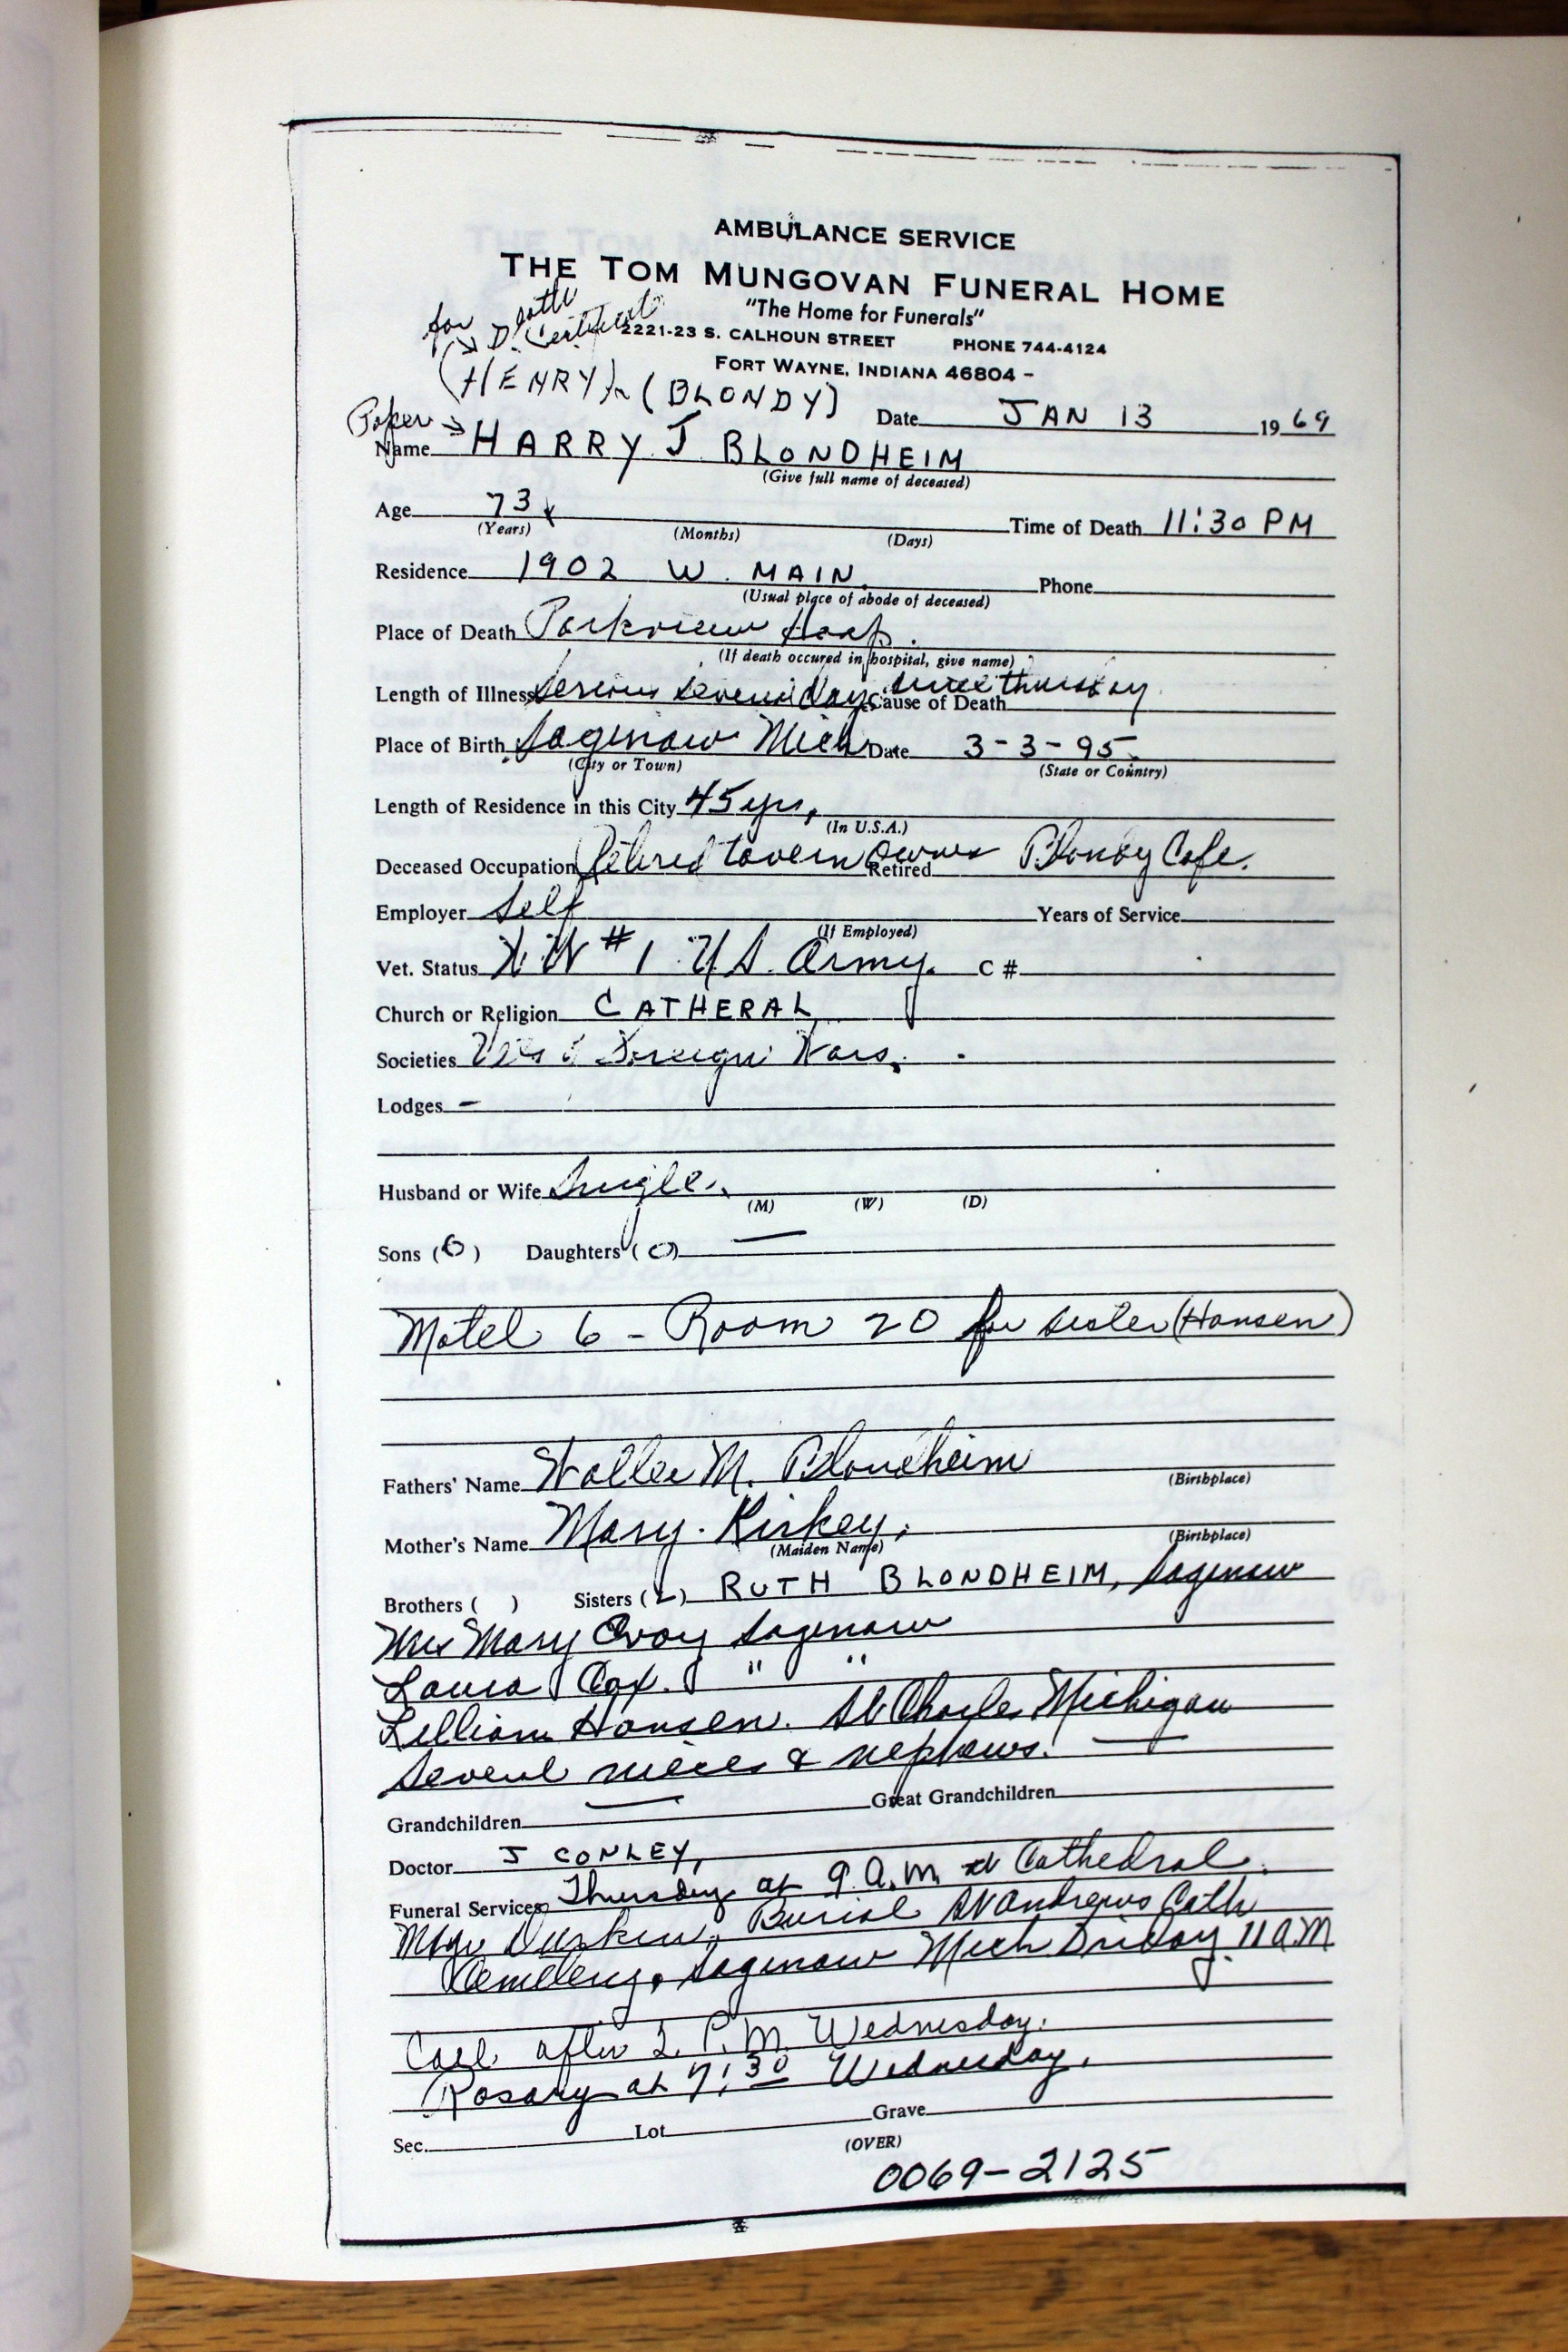 AMBULANCE SERVICE
THE TOM MUNGOVAN FUNERAL HOME
"The Home for Funerals"
2221-23 S. CALHOUN STREET PHONE 744-4124
FORT WAYNE, INDIANA 46804 -
for Death Certificate
(HENRY) (BLONDY)
Date JAN 13 1969
Paper
Name HARRY J BLONDHEIM
(Give full name of deceased)
Age 73 Time of Death 11:30 PM
(Years) (Months) (Days)
Residence 1902 W. MAIN. Phone
(Usual place of abode of deceased)
Place of Death Parkview Hosp.
(If death occured in hospital, give name)
Length of Illness Serious several days Cause of Death since thursday
Place of Birth Saginaw Mich Date 3-3-95.
(City or Town) (State or Country)
Length of Residence in this City 45 yrs,
(In U.S.A.)
Deceased Occupation Retired tavern owner Retired Blondy Cafe.
Employer Self Years of Service
(If Employed)
Vet. Status W W #1 U S. Army. C #
Church or Religion CATHERAL
Societies Foreign Wars.
Lodges -
Husband or Wife Single.
(M) (W) (D)
Sons (0) Daughters (0) —
Motel 6 - Room 20 for sister (Hansen)
Fathers' Name Walter M. Blondheim
(Birthplace)
Mother's Name Mary. Kirkey.
(Maiden Name) (Birthplace)
Brothers ( ) Sisters ( ) RUTH BLONDHEIM, Saginaw
Mrs Mary Saginaw
Laura Cox. " "
Lillian Hansen. St Charles Michigan
Several nieces & nephews. —
Grandchildren — Great Grandchildren
Doctor J CONLEY,
Funeral Services Thursday at 9 A.M at Cathedral.
Msgr Durkin, Burial St Andrews Cath
Cemetery, Saginaw Mich Friday 11 A.M
Call after 2 P.M. Wednesday.
Rosary at 7:30 Wednesday.
Sec. Lot Grave
(OVER)
0069-2125